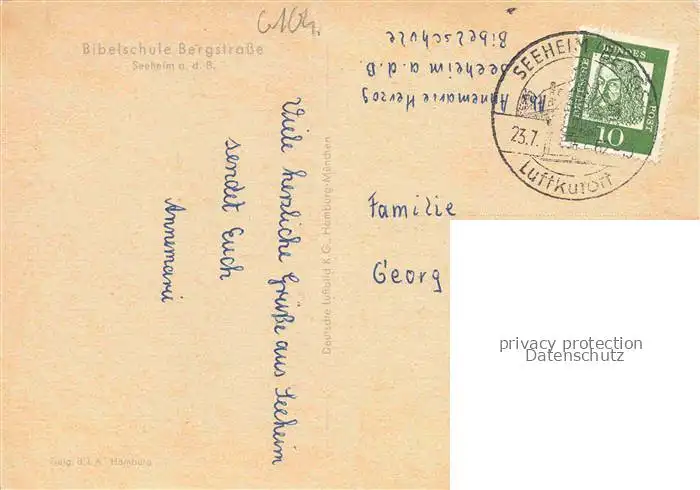 Bibelschule Bergstraße
Seeheim a. d. B.
Viele herzliche Grüße aus Seeheim
sendet Euch
Annemarie
Deutsche Luftbild K.G., Hamburg-München
Abs.
Annemarie Herzog
Seeheim a. d. B.
Bibelschule
SEEHEIM
23.7.
Luftkurort
BUNDES
POST
10
Familie
Georg
privacy protection
Datenschutz
Hamburg